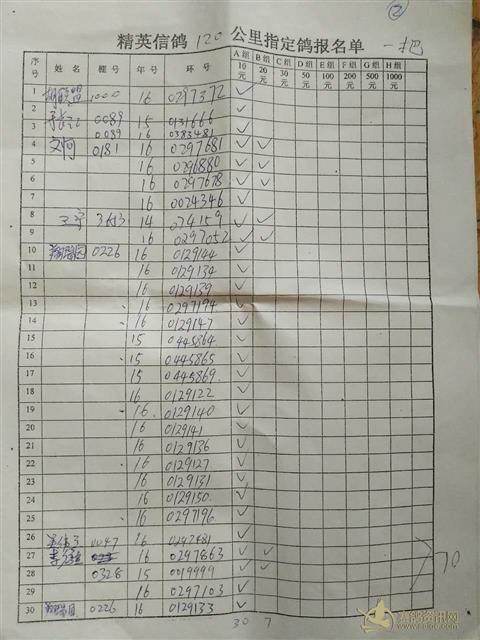 ②
精英信鸽 120 公里指定鸽报名单 一把
序号 姓名 棚号 年号 环号 A组10元 B组20元 C组30元 D组50元 E组100元 F组200元 G组500元 H组1000元
1 1000 16 0297372 ✓
2
3 0089 15 0131666 ✓
0089 16 0383481 ✓
4 文阿 0181 16 0297681 ✓ ✓
5 16 0296880 ✓ ✓
6 16 0297678 ✓ ✓
7 16 0024346 ✓
8 王宇 14 074159 ✓ ✓
9 16 0297052 ✓ ✓
10 0226 16 0129144 ✓
11 16 0129134 ✓
12 16 0129139 ✓
13 16 0297194 ✓
14 16 0129147 ✓
15 15 0445864 ✓
16 15 0445865 ✓
17 15 0445869 ✓
18 16 0129122 ✓
19 16 0129140 ✓
20 16 0129141 ✓
21 16 0129136 ✓
22 16 0129127 ✓
23 16 0129131 ✓
24 16 0129150 ✓
25 16 0297196 ✓
26 0047 16 0297481 ✓
27 16 0297863 ✓ ✓
28 0328 15 0019999 ✓ ✓
29 16 0297103 ✓
30 0226 16 0129133 ✓
70
30 7
赛鸽资讯网
www.saige.com